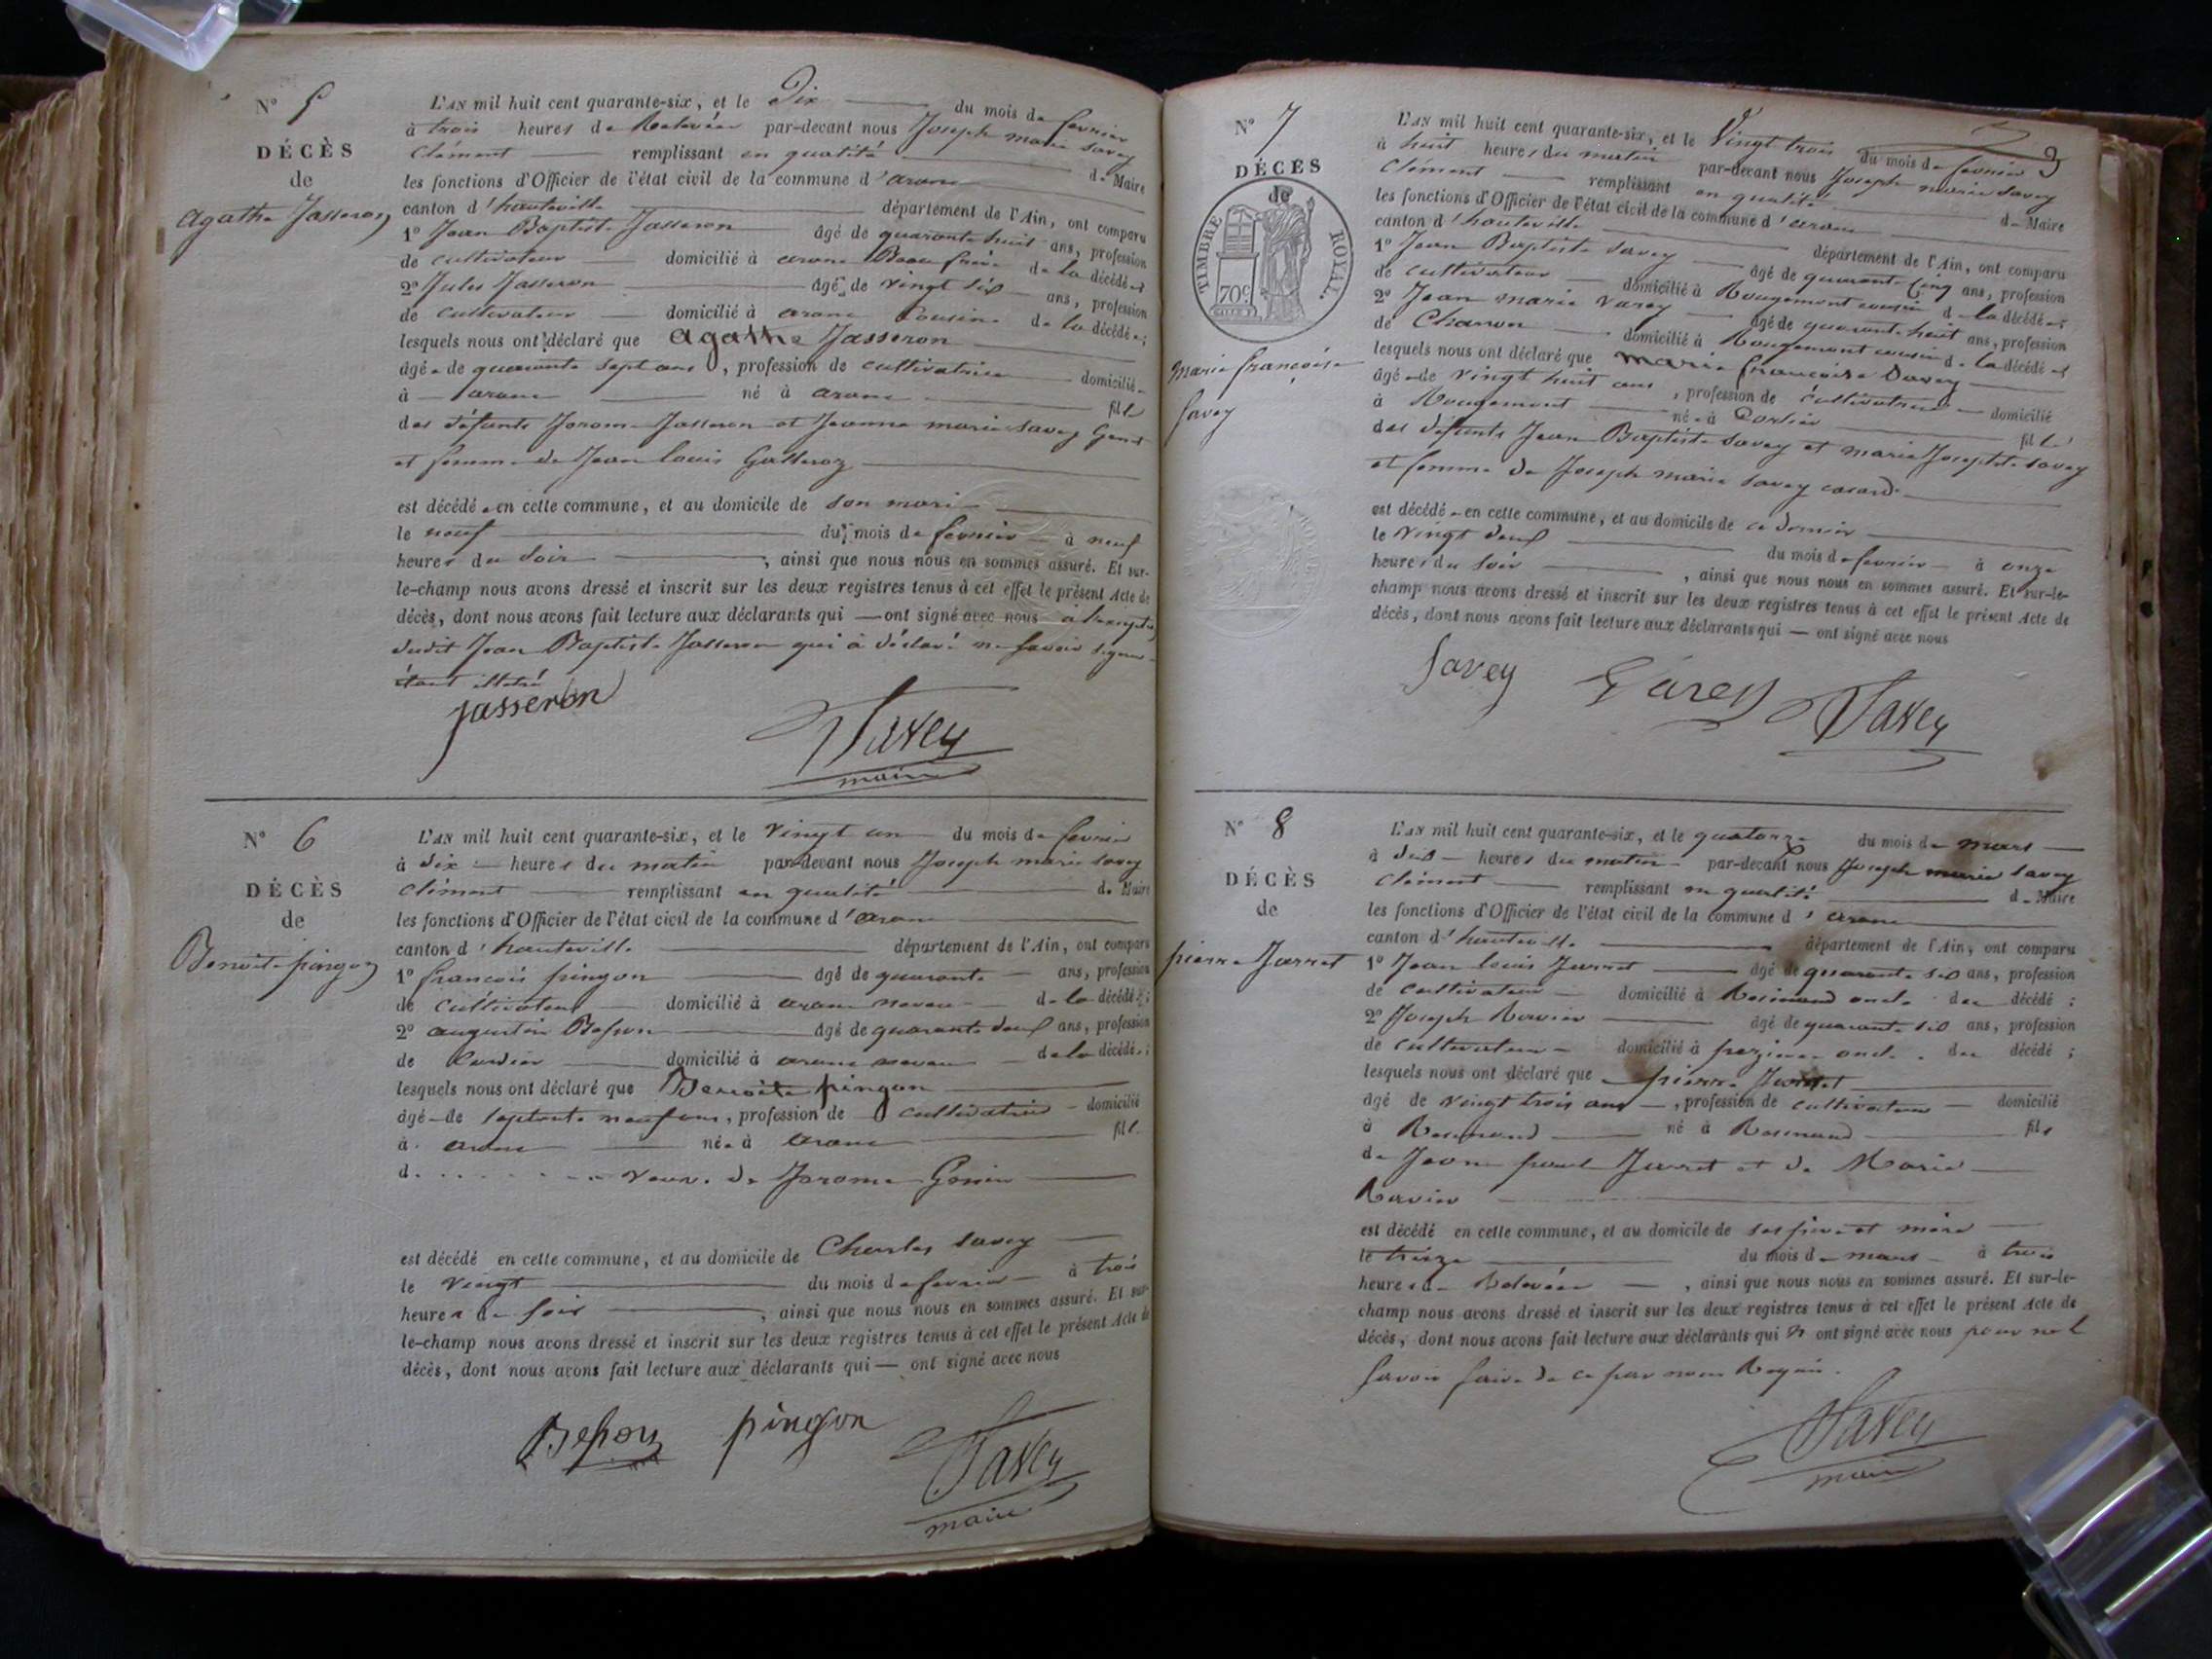 N° 5
DÉCÈS
de
Agathe Jasseron
L'AN mil huit cent quarante-six, et le Dix du mois de fevrier
à trois heures de Relevée par-devant nous Joseph marie Savey
Clément remplissant en qualité de Maire
les fonctions d'Officier de l'état civil de la commune d'aranc
canton d'hauteville département de l'Ain, ont comparu
1° Jean Baptiste Jasseron âgé de quarante huit ans, profession
de cultivateur domicilié à aranc Beau frère de la décédée
2° Jules Jasseron âgé de vingt six ans, profession
de cultivateur domicilié à aranc Cousin de la décédée;
lesquels nous ont déclaré que agathe Jasseron
âgée de quarante sept ans, profession de cultivatrice domicilié
à aranc né à aranc fille
des défunts Jerome Jasseron et Jeanne marie Savey
et femme de Jean louis
est décédée en cette commune, et au domicile de son mari
le neuf du mois de fevrier à neuf
heures du Soir, ainsi que nous nous en sommes assuré. Et sur-
le-champ nous avons dressé et inscrit sur les deux registres tenus à cet effet le présent Acte de
décès, dont nous avons fait lecture aux déclarants qui — ont signé avec nous à l'exception
dudit Jean Baptiste Jasseron qui à déclaré ne savoir signer
étant illétré
Jasseron Savey
maire
N° 6
DÉCÈS
de
Benoite pingon
L'AN mil huit cent quarante-six, et le vingt un du mois de fevrier
à dix heures du matin par-devant nous Joseph marie Savey
Clément remplissant en qualité de Maire
les fonctions d'Officier de l'état civil de la commune d'aranc
canton d'hauteville département de l'Ain, ont comparu
1° francois pingon âgé de quarante ans, profession
de cultivateur domicilié à aranc neveu de la décédée;
2° augustin Besson âgé de quarante deux ans, profession
de domicilié à aranc neveu de la décédée;
lesquels nous ont déclaré que Benoite pingon
âgée de septante neuf ans, profession de cultivatrice domicilié
à aranc née à aranc fille
d. . . . . . . veuve de Jerome
est décédé en cette commune, et au domicile de Charles Savey
le vingt du mois de fevrier à trois
heures du soir, ainsi que nous nous en sommes assuré. Et sur-
le-champ nous avons dressé et inscrit sur les deux registres tenus à cet effet le présent Acte de
décès, dont nous avons fait lecture aux déclarants qui — ont signé avec nous
Besson pingon Savey
maire
N° 7
DÉCÈS
de
TIMBRE ROYAL.
70c
marie francoise
Savey
L'AN mil huit cent quarante-six, et le Vingt trois du mois de fevrier
à huit heures du matin par-devant nous Joseph marie Savey
Clément remplissant en qualité de Maire
les fonctions d'Officier de l'état civil de la commune d'aranc
canton d'hauteville département de l'Ain, ont comparu
1° Jean Baptiste Savey âgé de quarante cinq ans, profession
de cultivateur domicilié à Rougemont cousin de la décédée
2° Jean marie Varey âgé de quarante huit ans, profession
de Charron domicilié à Rougemont cousin de la décédée
lesquels nous ont déclaré que marie francoise Savey
âgée de vingt huit ans, profession de cultivatrice domicilié
à Rougemont née à Corlier fille
des défunts Jean Baptiste Savey et marie Josephte Savey
et femme de Joseph marie Savey
est décédée en cette commune, et au domicile de ce dernier
le vingt deux du mois de fevrier à onze
heures du soir, ainsi que nous nous en sommes assuré. Et sur-le-
champ nous avons dressé et inscrit sur les deux registres tenus à cet effet le présent Acte de
décès, dont nous avons fait lecture aux déclarants qui — ont signé avec nous
Savey Varey Savey
N° 8
DÉCÈS
de
pierre Jarret
L'AN mil huit cent quarante-six, et le quatorze du mois de mars
à dix heures du matin par-devant nous Joseph marie Savey
Clément remplissant en qualité de Maire
les fonctions d'Officier de l'état civil de la commune d'aranc
canton d'hauteville département de l'Ain, ont comparu
1° Jean louis Jarret âgé de quarante six ans, profession
de cultivateur domicilié à Resinand oncle du décédé;
2° Joseph Ravier âgé de quarante six ans, profession
de cultivateur domicilié à oncle du décédé;
lesquels nous ont déclaré que pierre Jarret
âgé de vingt trois ans, profession de cultivateur domicilié
à Resinand né à Resinand fils
de paul Jarret et de Marie
Ravier
est décédé en cette commune, et au domicile de ses père et mère
le treize du mois de mars à trois
heures de Relevée, ainsi que nous nous en sommes assuré. Et sur-le-
champ nous avons dressé et inscrit sur les deux registres tenus à cet effet le présent Acte de
décès, dont nous avons fait lecture aux déclarants qui n'ont signé avec nous pour ne le
savoir faire de ce par nous Requis.
Savey
maire